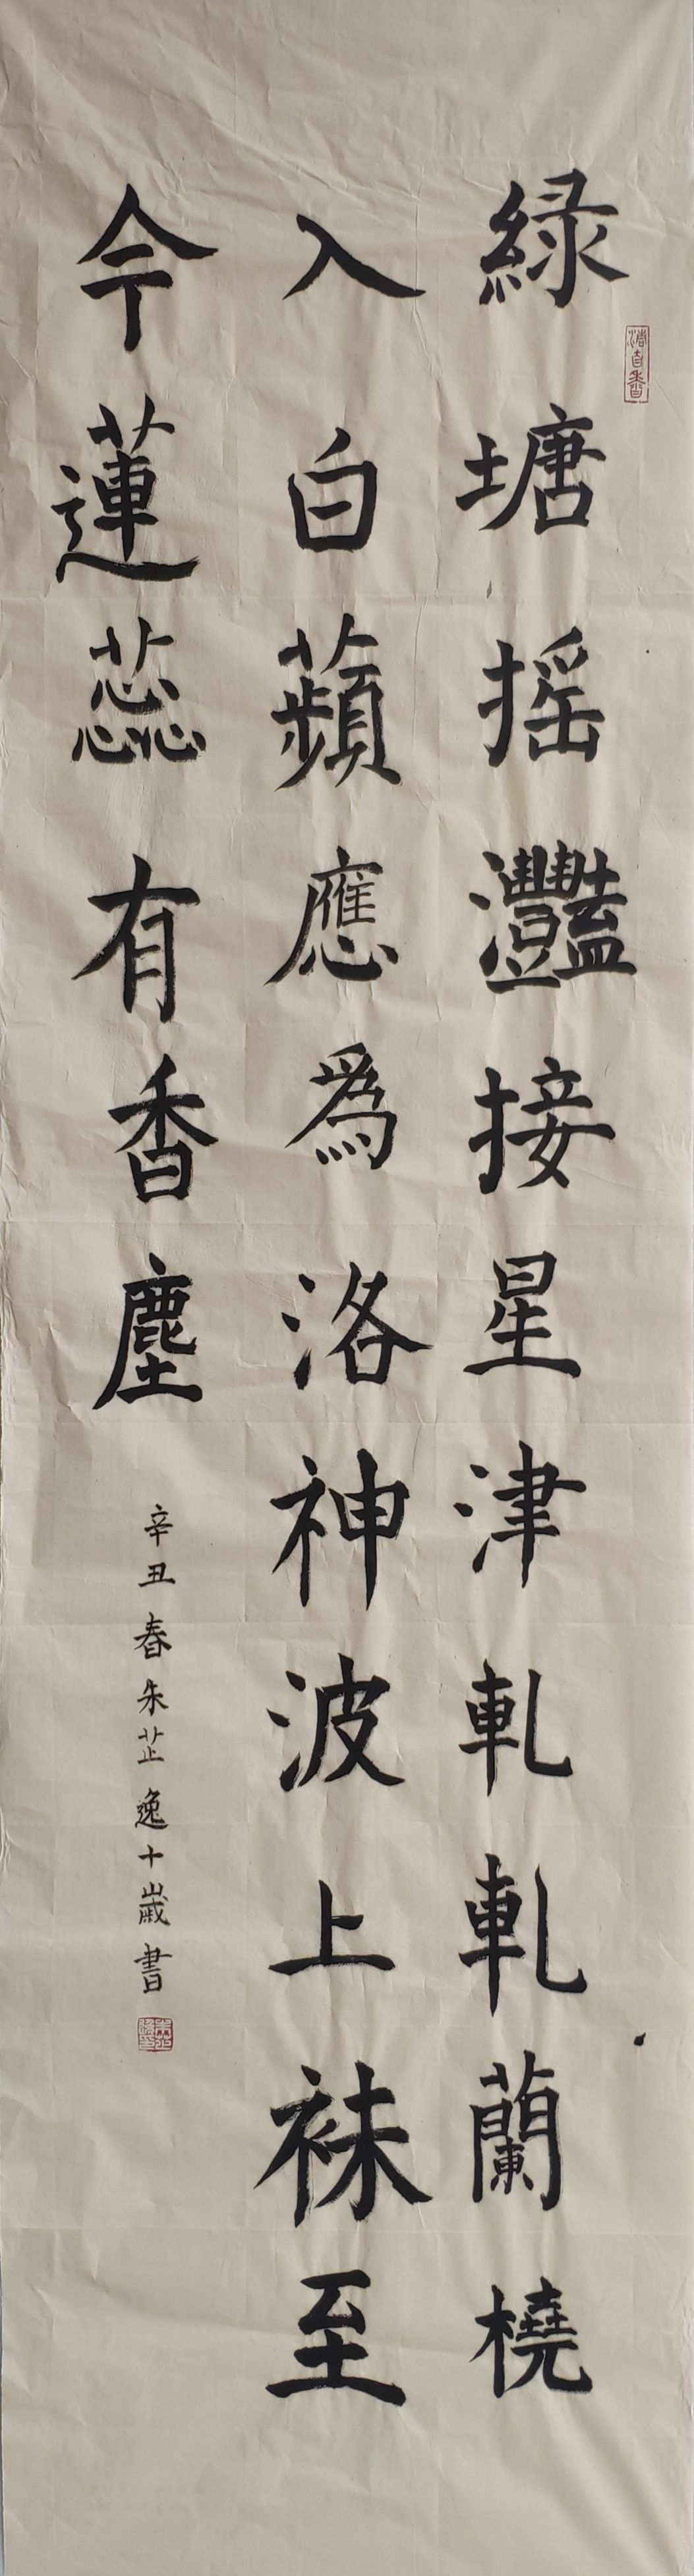 綠塘摇灩接星津軋軋蘭橈
入白蘋應爲洛神波上袜至
今蓮蕊有香塵
辛丑春朱芷逸十歲書